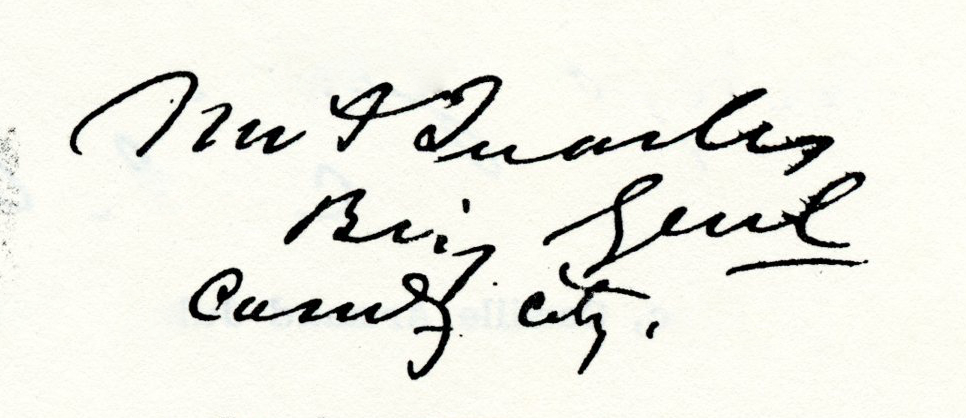 Wm A Quarles
Brig Genl
Comdg city.